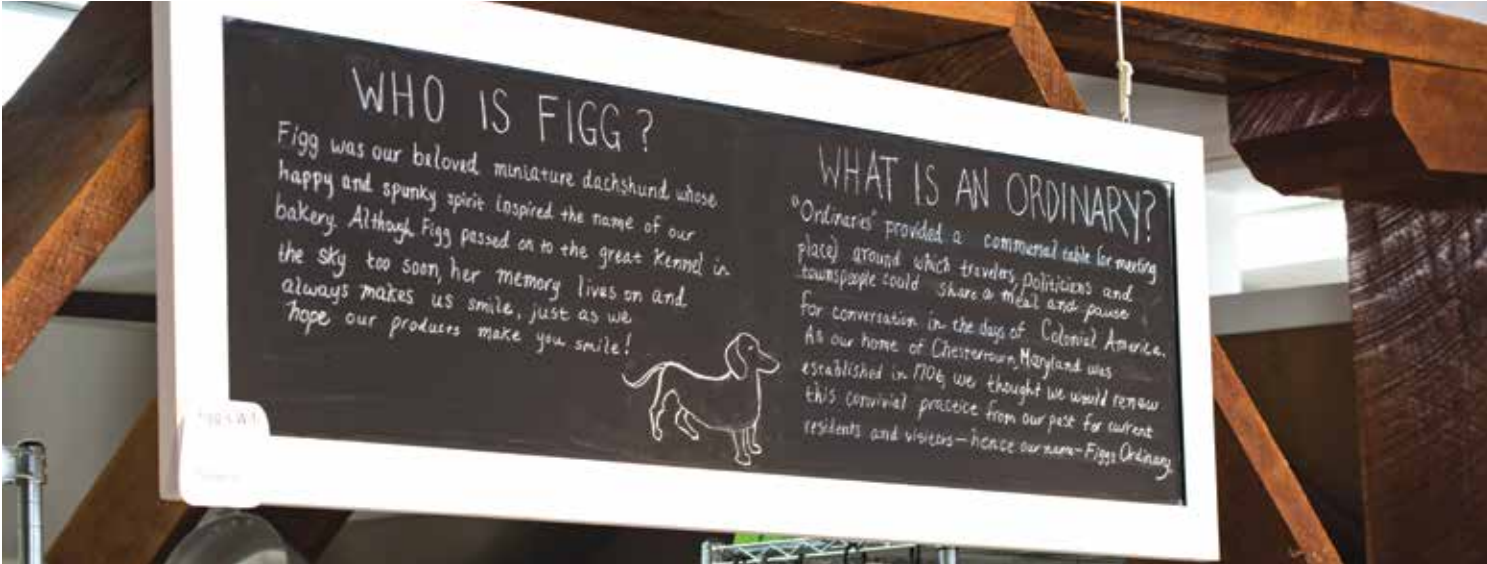 WHO IS FIGG?
Figg was our beloved miniature dachshund whose
happy and spunky spirit inspired the name of our
bakery. Although Figg passed on to the great Kennel in
the sky too soon, her memory lives on and
always makes us smile, just as we
hope our products make you smile!
WHAT IS AN ORDINARY?
"Ordinaries" provided a communal table (or meeting
place) around which travelers, politicians and
townspeople could share a meal and pause
for conversation in the days of Colonial America.
As our home of Chestertown, Maryland was
established in 1706, we thought we would renew
this convivial practice from our past for current
residents and visitors—hence our name—Figgs Ordinary.